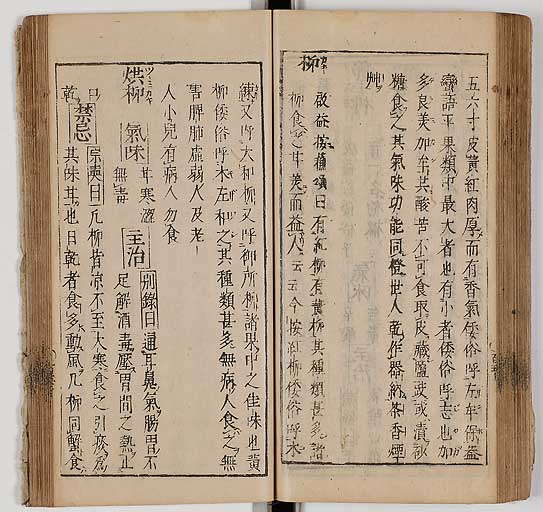 五六寸皮黃紅肉厚而有香氣倭俗呼左牟保盃
蠻語平果類中最大者也有小者倭俗呼志也加
多良美加至其酸苦不可食取皮藏鹽或漬沙
糖食之其氣味功能同橙世人乾作器納茶香煙
艸
柳 啟益按蘓頌曰有紅柳有黃柳其種類甚多諸
柳食之甘美而益人云云今按紅柳倭俗呼木
練又呼大和柳又呼御所柳諸果中之佳味也黃
柳倭俗呼木左和之其種類甚多無病人食之無
害脾肺虛弱人及老
人小兒有病人勿食
烘柳 氣味 甘寒澀無毒 主治 別錄曰通耳鼻氣腸胃不足解酒毒壓胃間之熱止
口乾 禁忌 宗奭曰凡柳皆凉不至大寒食之引痰爲其味甘也日乾者食多動風凡柳同蟹食